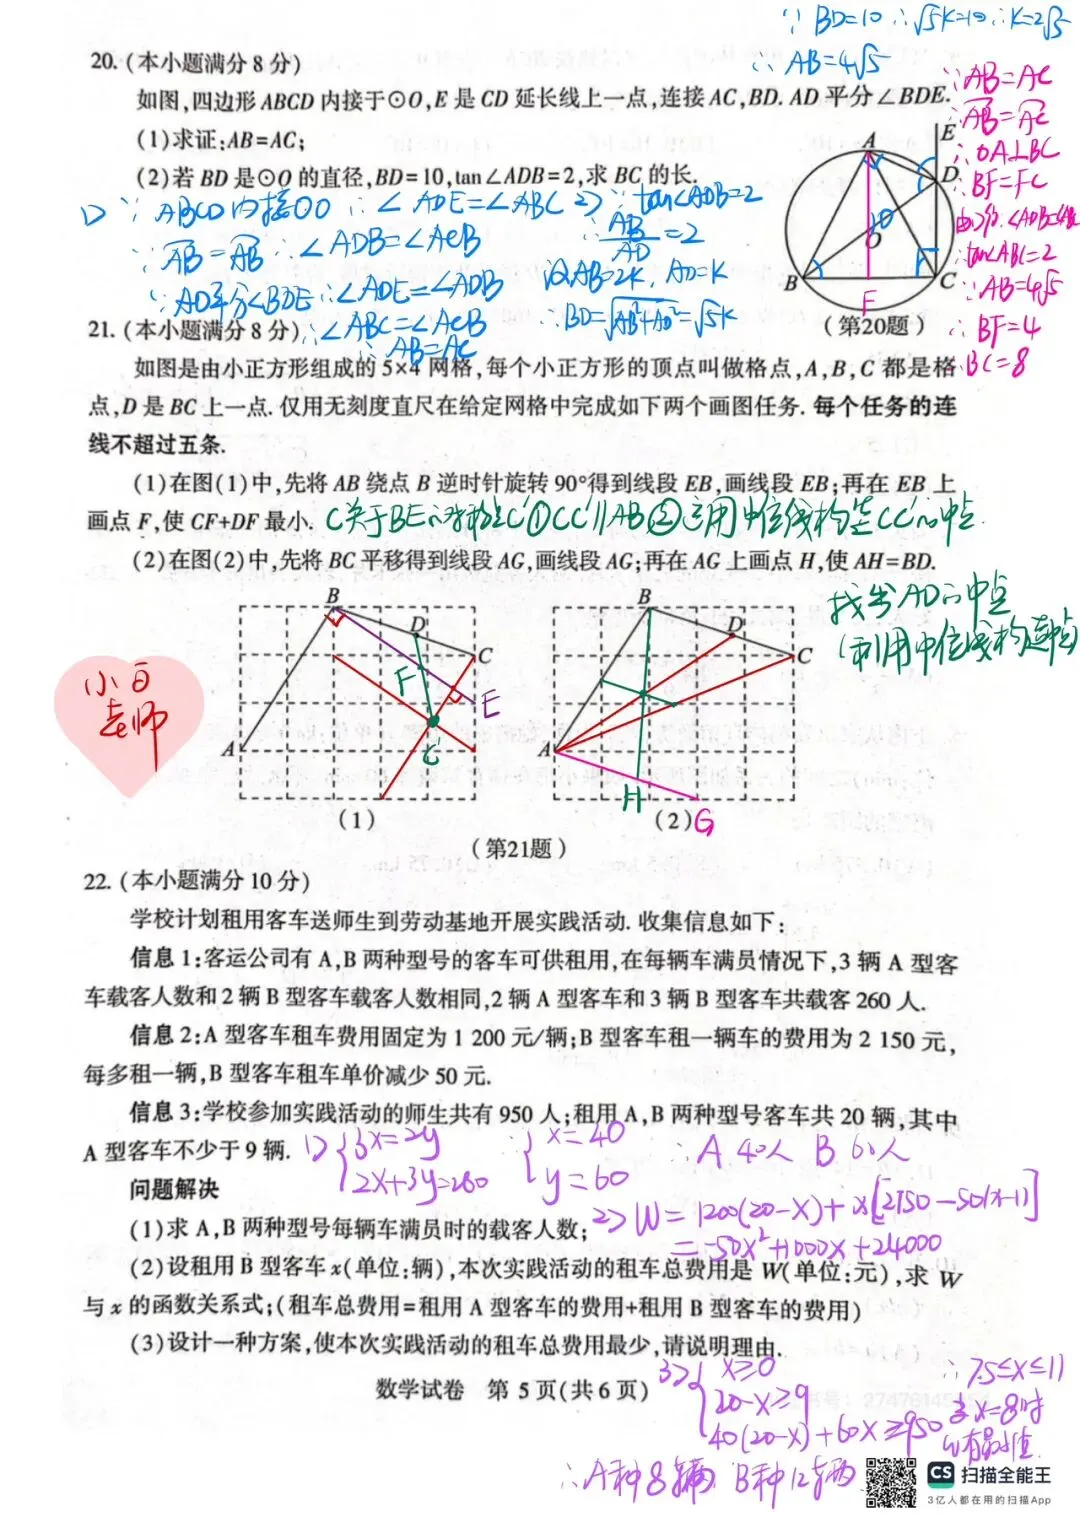 ∵ BD=10 ∴ √5K=10 ∴ K=2√5
∴ AB=4√5
20. (本小题满分 8 分)
如图,四边形 ABCD 内接于⊙O,E 是 CD 延长线上一点,连接 AC,BD. AD 平分∠BDE.
(1)求证:AB=AC;
(2)若 BD 是⊙O 的直径,BD=10,tan∠ADB=2,求 BC 的长.
1) ∵ ABCD内接⊙O ∴ ∠ADE=∠ABC
∵ AB=AB ∴ ∠ADB=∠ACB
∵ AD平分∠BDE ∴ ∠ADE=∠ADB
∴ ∠ABC=∠ACB
∴ AB=AC
2) ∵ tan∠ADB=2
∴ AB/AD=2
设AB=2K, AD=K
∴ BD=√AB²+AD²=√5K
∵ AB=AC
∴ AB=AC
∴ OA⊥BC
∴ BF=FC
tan∠ABC=2
∵ AB=4√5
∴ BF=4
∴ BC=8
A
E
D
O
B
C
F
(第20题)
21. (本小题满分 8 分)
如图是由小正方形组成的 5×4 网格,每个小正方形的顶点叫做格点,A,B,C 都是格
点,D 是 BC 上一点. 仅用无刻度直尺在给定网格中完成如下两个画图任务. 每个任务的连
线不超过五条.
(1)在图(1)中,先将 AB 绕点 B 逆时针旋转 90°得到线段 EB,画线段 EB;再在 EB 上
画点 F,使 CF+DF 最小.
C关于BE的对称点C' ①CC'∥AB ②运用中位线构造CC'的中点
(2)在图(2)中,先将 BC 平移得到线段 AG,画线段 AG;再在 AG 上画点 H,使 AH=BD.
找出AD的中点
(利用中位线构造中点)
小白
老师
B
D
C
F
E
A
C'
(1)
B
D
C
A
H
G
(2)
(第21题)
22. (本小题满分 10 分)
学校计划租用客车送师生到劳动基地开展实践活动. 收集信息如下:
信息 1:客运公司有 A,B 两种型号的客车可供租用,在每辆车满员情况下,3 辆 A 型客
车载客人数和 2 辆 B 型客车载客人数相同,2 辆 A 型客车和 3 辆 B 型客车共载客 260 人.
信息 2:A 型客车租车费用固定为 1 200 元/辆;B 型客车租一辆车的费用为 2 150 元,
每多租一辆,B 型客车租车单价减少 50 元.
信息 3:学校参加实践活动的师生共有 950 人;租用 A,B 两种型号客车共 20 辆,其中
A 型客车不少于 9 辆.
1) {3x=2y
2x+3y=260
∴ {x=40
y=60
∴ A 40人 B 60人
问题解决
(1)求 A,B 两种型号每辆车满员时的载客人数;
2) W=1200(20-x)+x[2150-50(x-1)]
=-50x²+1000x+24000
(2)设租用 B 型客车 x(单位:辆),本次实践活动的租车总费用是 W(单位:元),求 W
与 x 的函数关系式;(租车总费用=租用 A 型客车的费用+租用 B 型客车的费用)
(3)设计一种方案,使本次实践活动的租车总费用最少,请说明理由.
3) {x≥0
20-x≥9
40(20-x)+60x≥950
∴ 7.5≤x≤11
当x=8时
w有最小值
∴ A种8辆 B种12辆
数学试卷 第 5 页(共 6 页)
CS 扫描全能王
3亿人都在用的扫描App